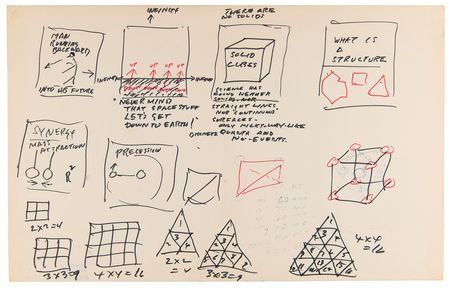 INFINITY
THERE ARE
NO SOLIDS
MAN
RUNNING
BACKWARD
INTO HIS FUTURE
UP UP UP UP
INFINITY
INFINITY
"NEVER MIND
THAT SPACE STUFF
LET'S GET
DOWN TO EARTH!"
SOLID
CUBES
SCIENCE HAS
FOUND NEITHER
SOLIDS NOR
STRAIGHT LINES,
NOR "CONTINUOUS"
SURFACES-
ONLY MILKY-WAY-LIKE
DISCRETE QUANTA AND
NO-EVENTS.
WHAT IS
A
STRUCTURE
SYNERGY
MASS ATTRACTION
R²
PRECESSION
2X2=4
3X3=9
4X4=16
1
2 3 4
2X2
=4
3X3=9
4X4
=16